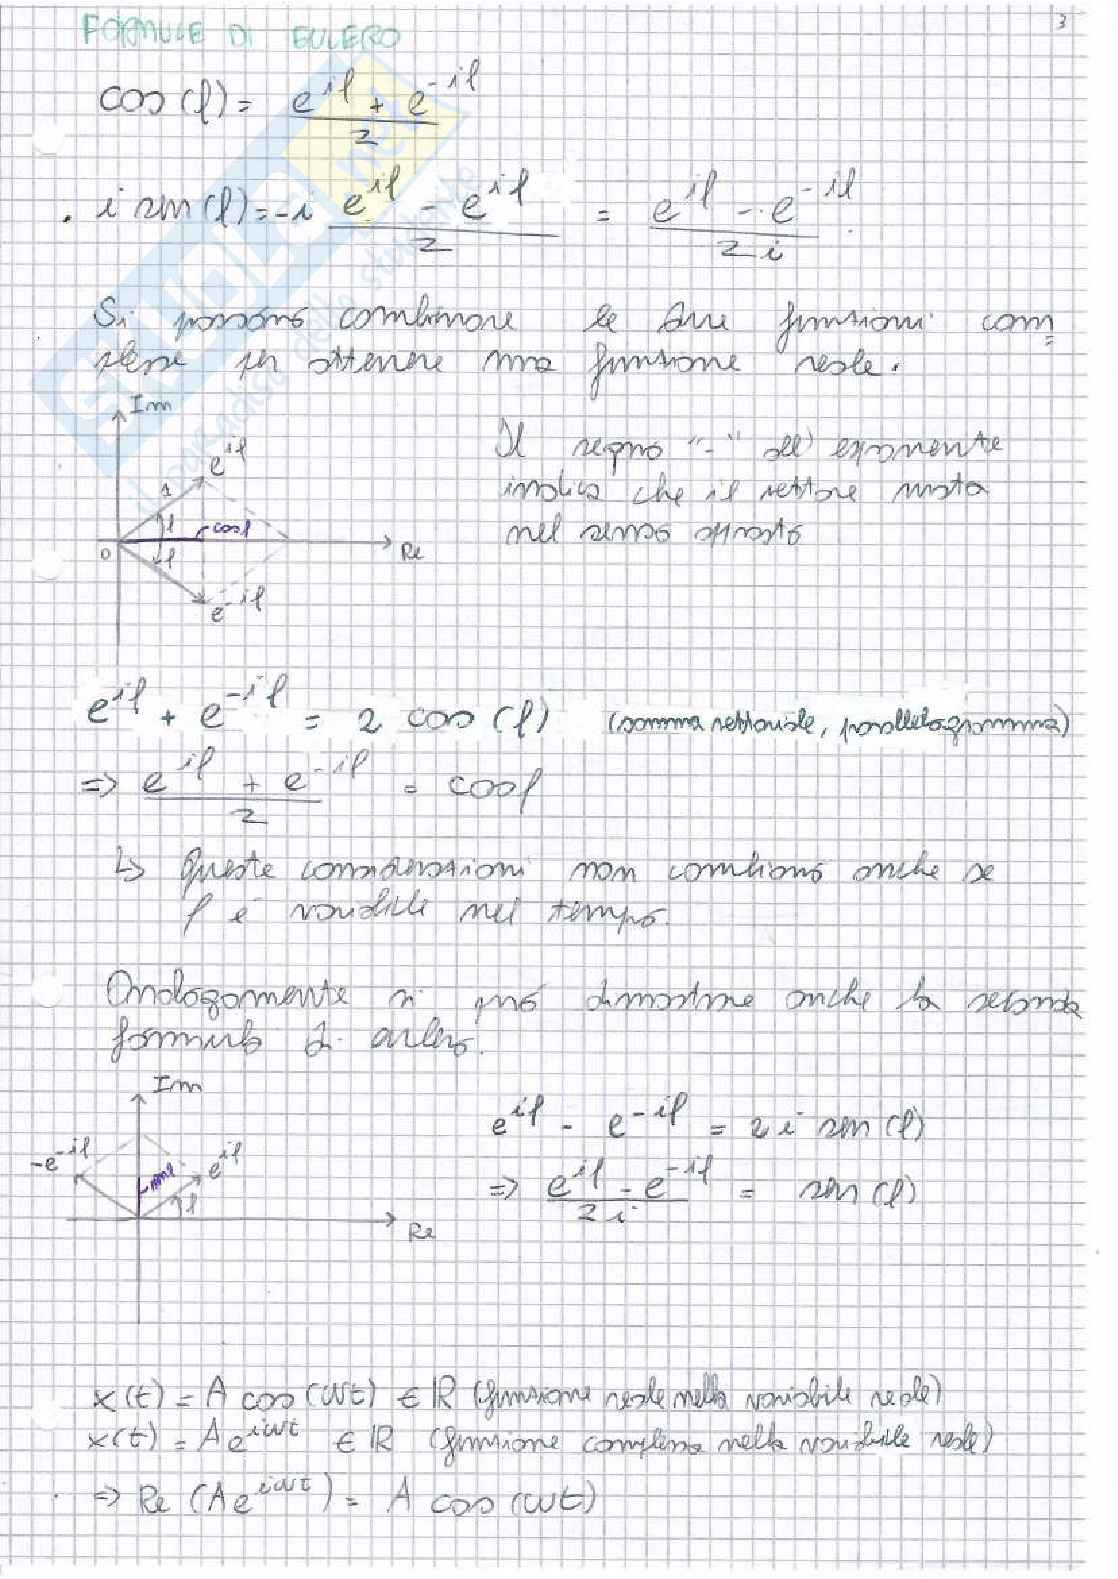 3
FORMULE DI EULERO
cos(φ) = (e^{iφ} + e^{-iφ}) / 2
. i sen(φ) = -i (e^{iφ} - e^{iφ}) / 2 = (e^{iφ} - e^{-iφ}) / 2i
Si possono combinare le due funzioni com=
plesse per ottenere una funzione reale.
Im
e^{iφ}
1
φ
cosφ
0
φ
Re
e^{-iφ}
Il segno "-" all'esponente
indica che il vettore ruota
nel senso opposto
e^{iφ} + e^{-iφ} = 2 cos(φ) (somma vettoriale, parallelogramma)
=> (e^{iφ} + e^{-iφ}) / 2 = cosφ
↳ Queste considerazioni non cambiano anche se
φ è variabile nel tempo.
Analogamente si può dimostrare anche la seconda
formula di eulero.
Im
-e^{-iφ}
senφ
e^{iφ}
φ
Re
e^{iφ} - e^{-iφ} = 2i sen(φ)
=> (e^{iφ} - e^{-iφ}) / 2i = sen(φ)
x(t) = A cos(ωt) ∈ ℝ (funzione reale nella variabile reale)
x(t) = A e^{iωt} ∈ ℝ (funzione complessa nella variabile reale)
. => Re (A e^{iωt}) = A cos(ωt)